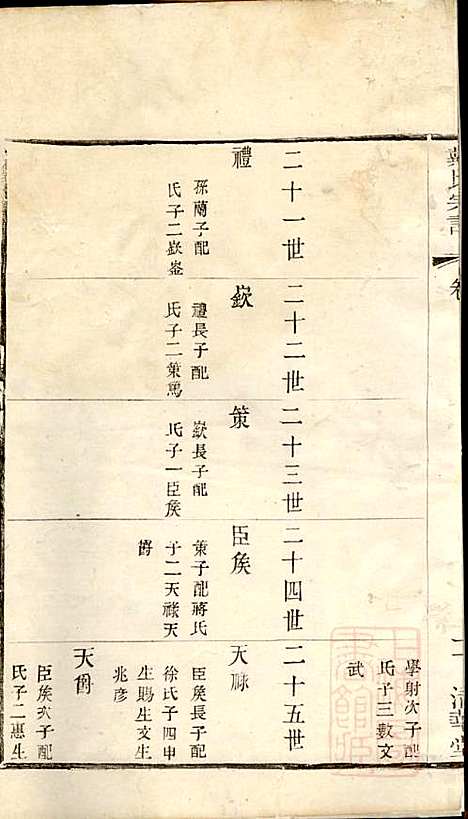 二十一世
禮
孫蘭子配
氏子二嶔崟
二十二世
嶔
禮長子配
氏子二策篤
二十三世
策
嶔長子配
氏子一臣矦
二十四世
臣矦
策子配蔣氏
子二天祿天
爵
學射次子配
氏子三數文
武
二十五世
天祿
臣矦長子配
徐氏子四申
生賜生文生
兆彥
天爵
臣矦次子配
氏子二惠生
氏宗譜
卷
清華堂